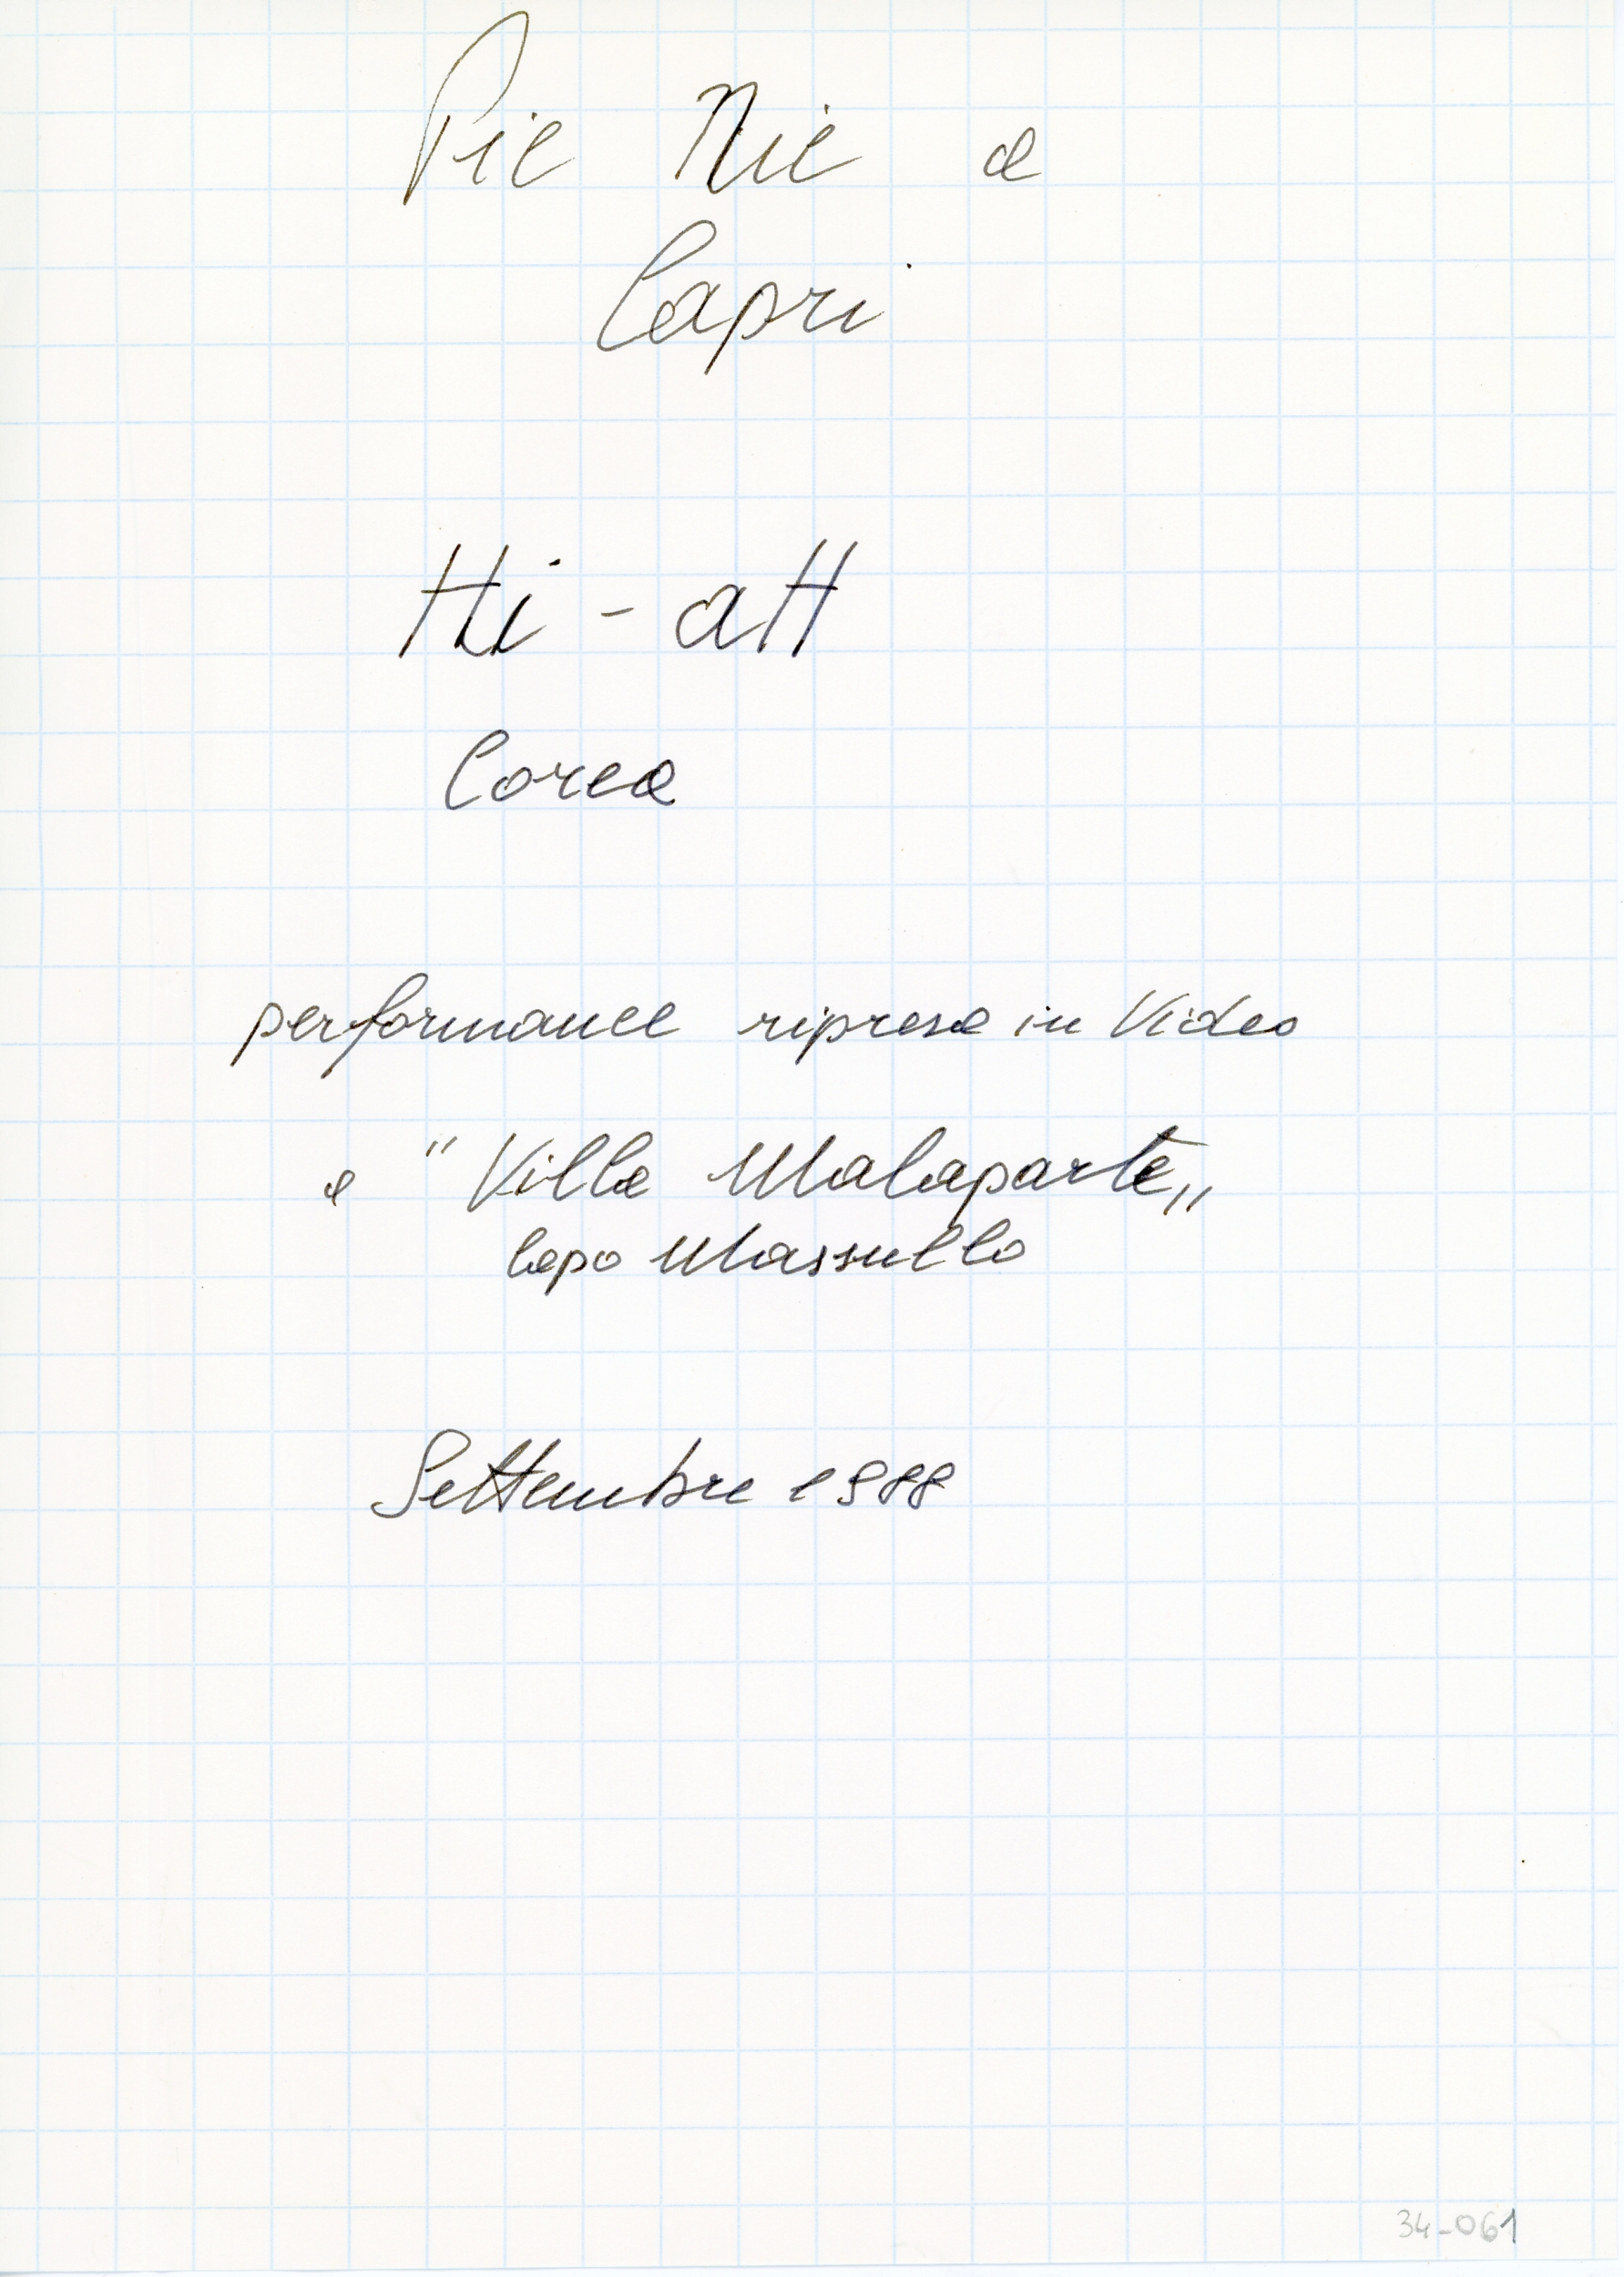 Pic Nic a
Capri
Hi - aH
Corea
performance ripresa in Video
a "Villa Malaparte„
Capo Massullo
Settembre 1988
34-061